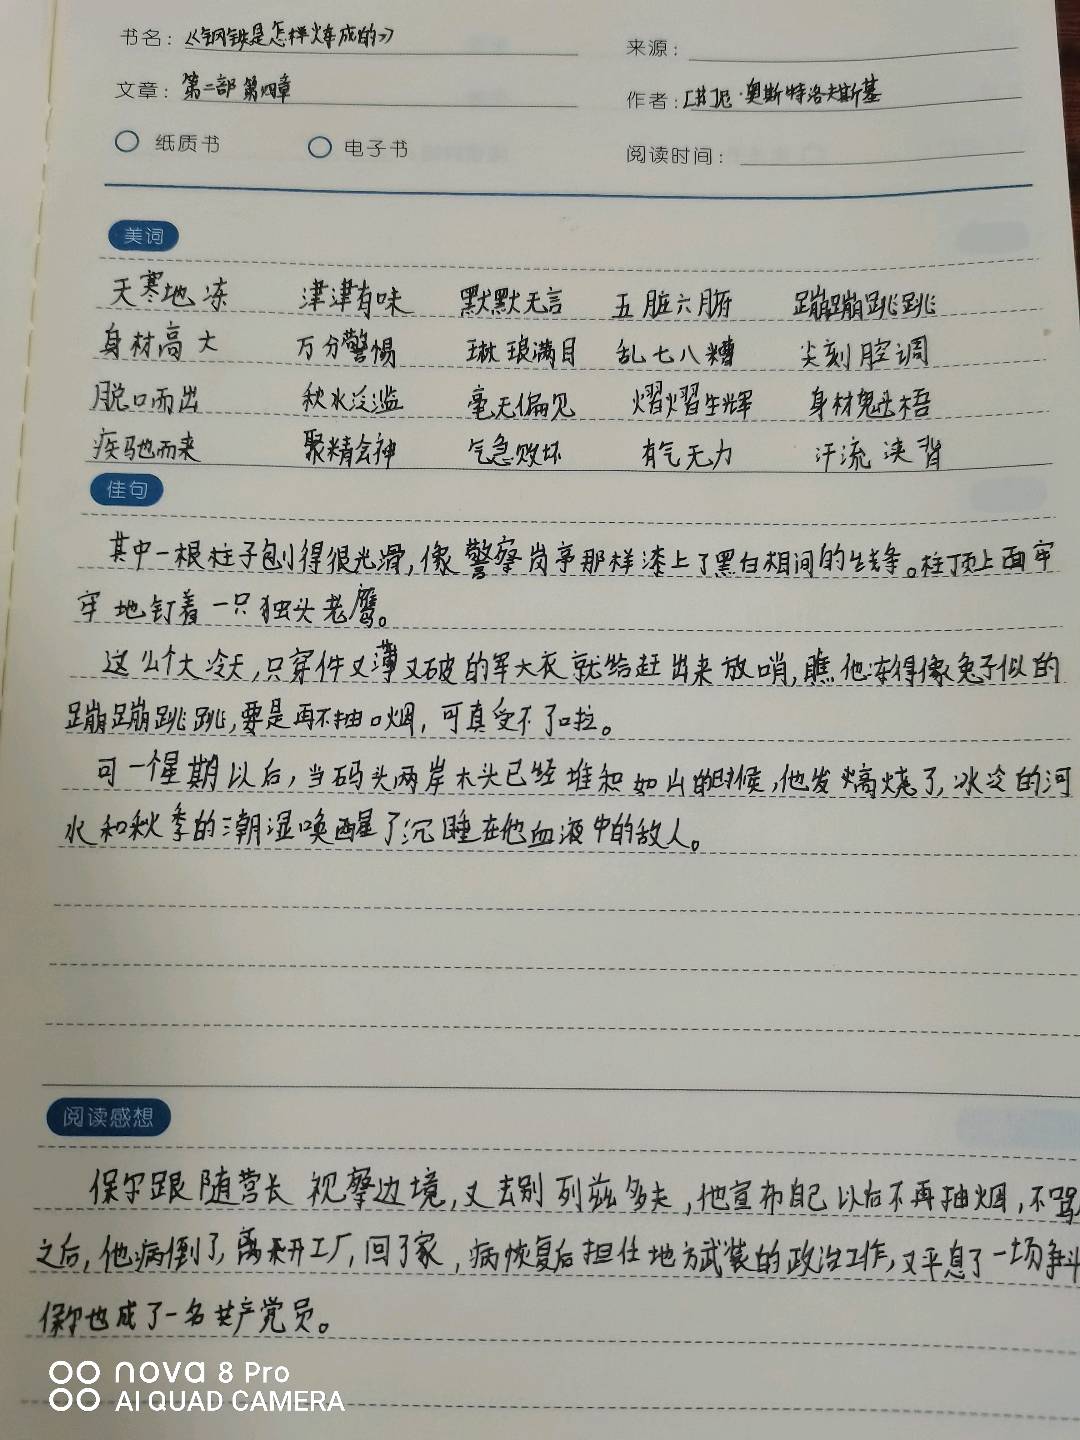 书名：《钢铁是怎样炼成的》
来源：
文章：第二部 第四章
作者：[苏]尼·奥斯特洛夫斯基
纸质书 电子书
阅读时间：
美词
天寒地冻 津津有味 默默无言 五脏六腑 蹦蹦跳跳
身材高大 万分警惕 琳琅满目 乱七八糟 尖刻腔调
脱口而出 秋水泛滥 毫无偏见 熠熠生辉 身材魁梧
疾驰而来 聚精会神 气急败坏 有气无力 汗流浃背
佳句
其中一根柱子刨得很光滑，像警察岗亭那样漆上了黑白相间的线条。柱顶上面牢
牢地钉着一只独头老鹰。
这么个大冷天，只穿件又薄又破的军大衣就给赶出来放哨，瞧他冻得像兔子似的
蹦蹦跳跳，要是再不抽口烟，可真受不了啦。
可一个星期以后，当码头两岸木头已经堆积如山的时候，他发熇烧了，冰冷的河
水和秋季的潮湿唤醒了沉睡在他血液中的敌人。
阅读感想
保尔跟随营长视察边境，又去别列兹多夫，他宣布自己以后不再抽烟，不骂
之后，他病倒了，离开工厂，回了家，病恢复后担任地方武装的政治工作，又平息了一场争斗
保尔也成了一名共产党员。
nova 8 Pro
AI QUAD CAMERA